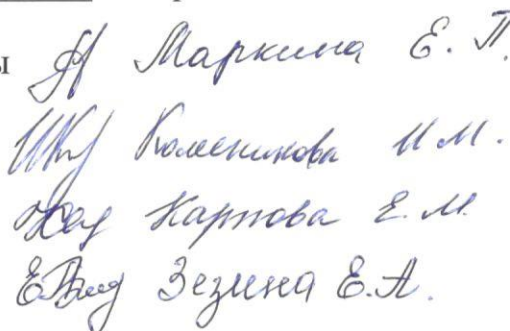 ы Маркина Е. П.
Колесникова И. М.
Карпова Е. М.
Зезина Е. А.